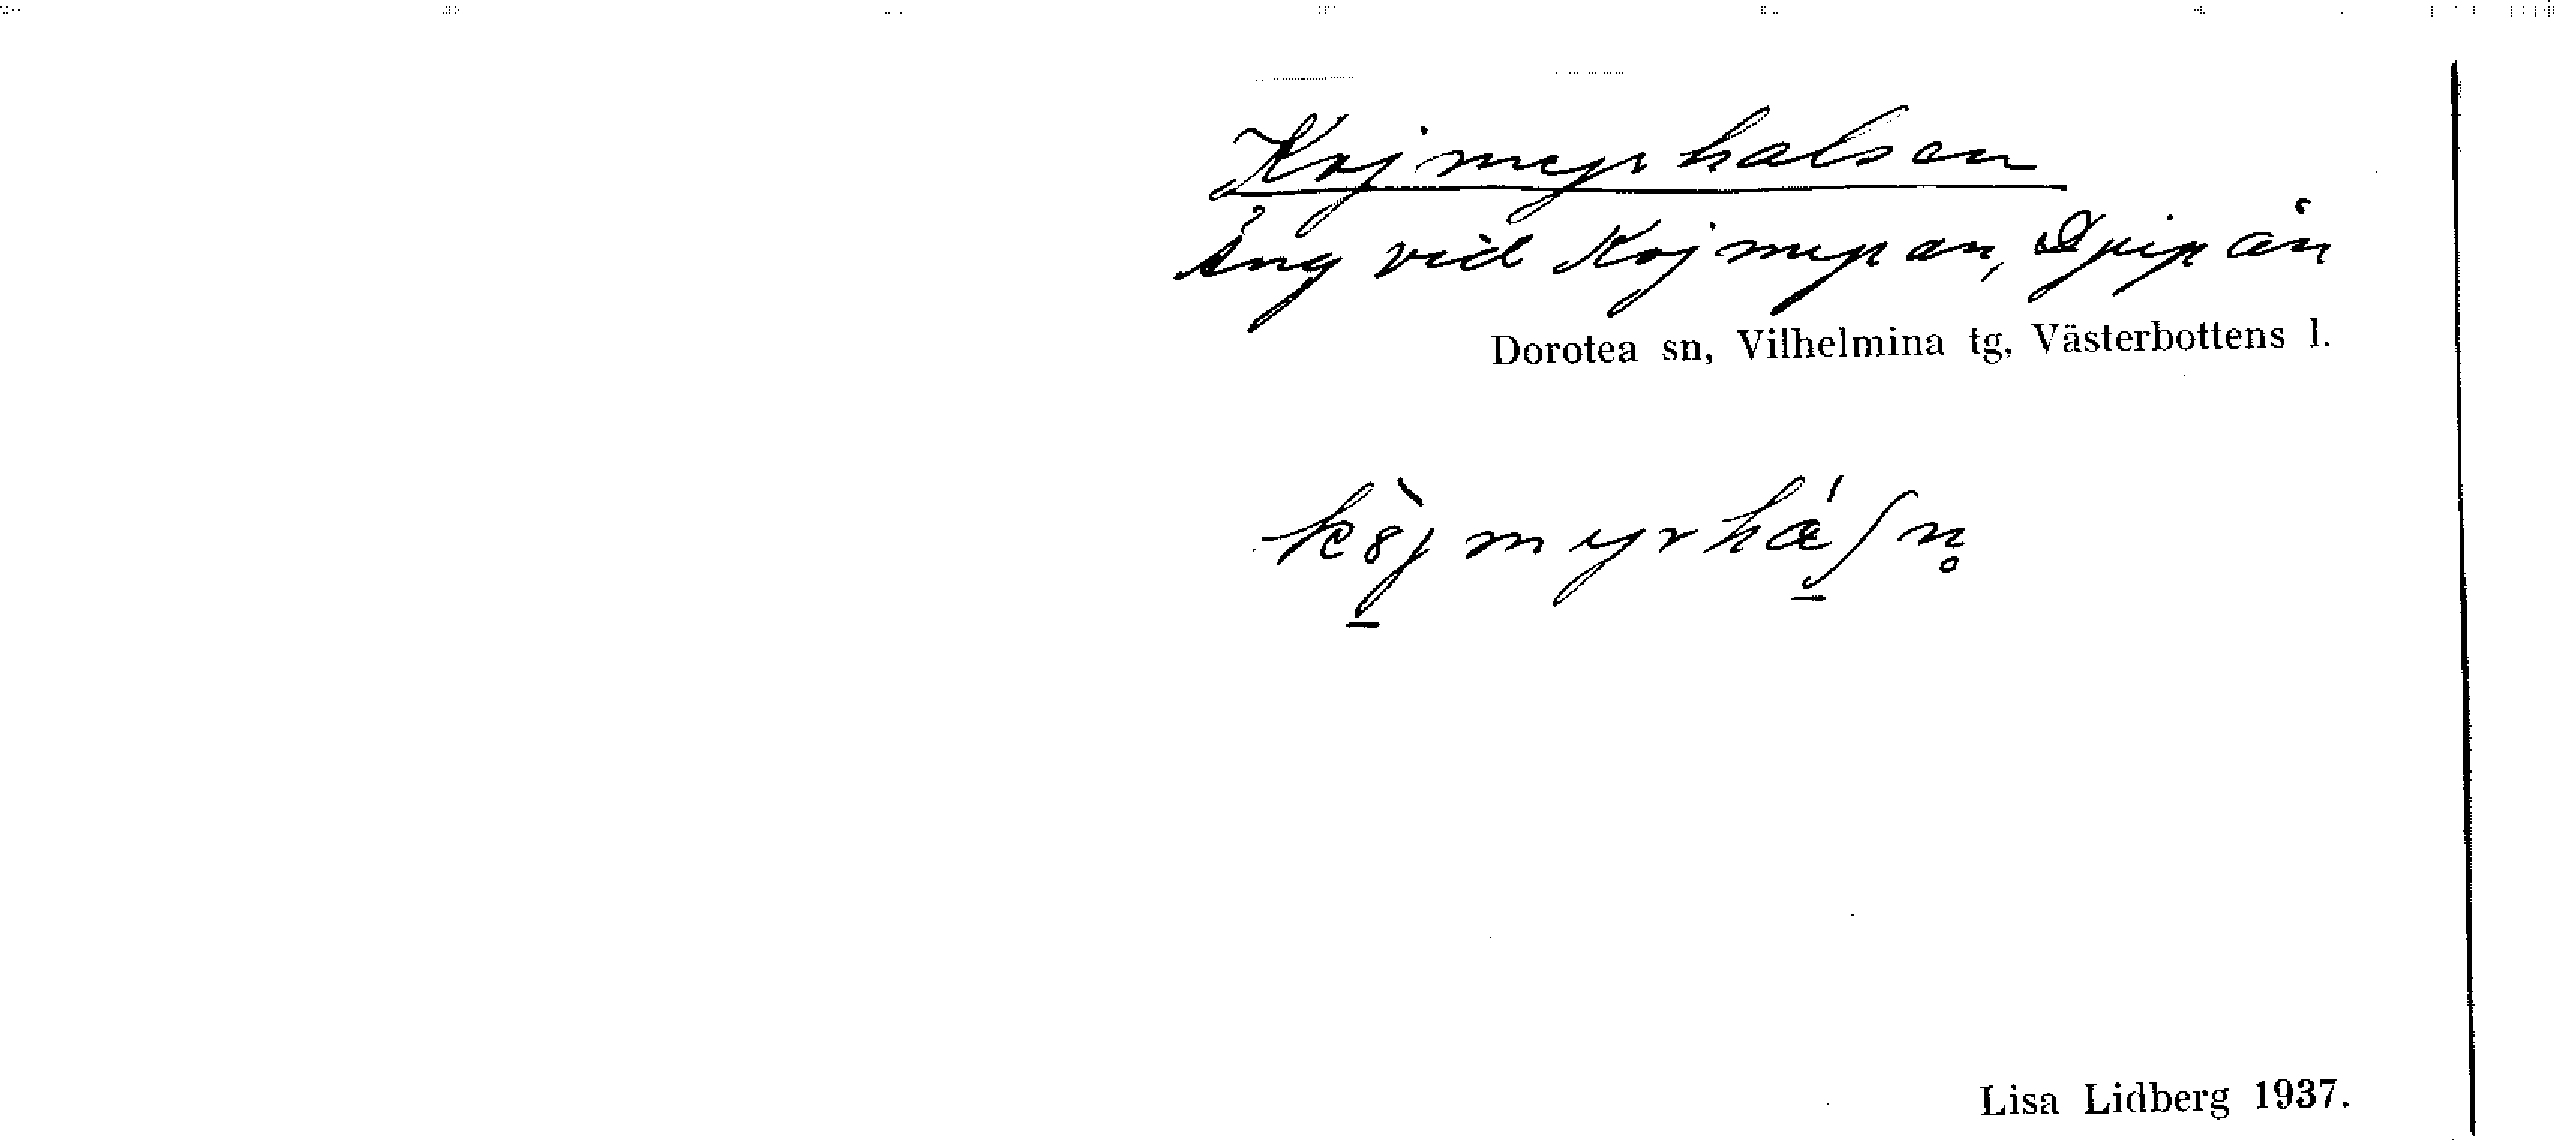 Kojmyrhalsen
Äng vid Kojmyran, Avirån
Dorotea sn, Vilhelmina tg, Västerbottens l.
Lisa Lidberg 1937.